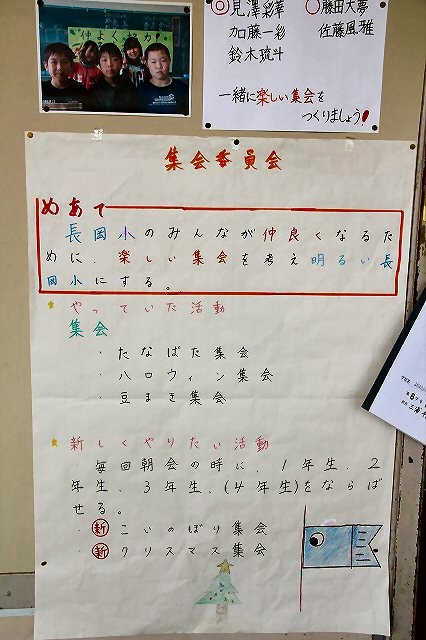 仲よく協力
◎見澤彩華 ○藤田大夢
加藤一彩 佐藤風雅
鈴木琉斗
一緒に楽しい集会を
つくりましょう!
集会委員会
めあて
長岡小のみんなが仲良くなるた
めに、楽しい集会を考え明るい長
岡小にする。
やっていた活動
集会
・たなばた集会
・ハロウィン集会
・豆まき集会
新しくやりたい活動
毎回朝会の時に、1年生、2
年生、3年生、(4年生)をならば
せる。
・新 こいのぼり集会
・新 クリスマス集会